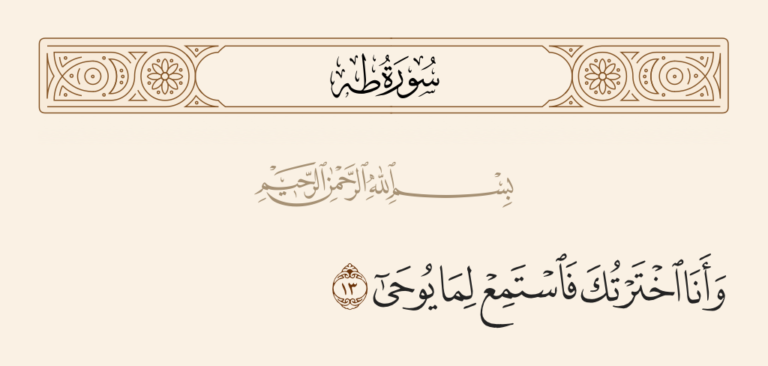 سُورَةُ طه
بِسْمِ ٱللَّهِ ٱلرَّحْمَٰنِ ٱلرَّحِيمِ
وَأَنَا ٱخْتَرْتُكَ فَٱسْتَمِعْ لِمَا يُوحَىٰٓ ١٣